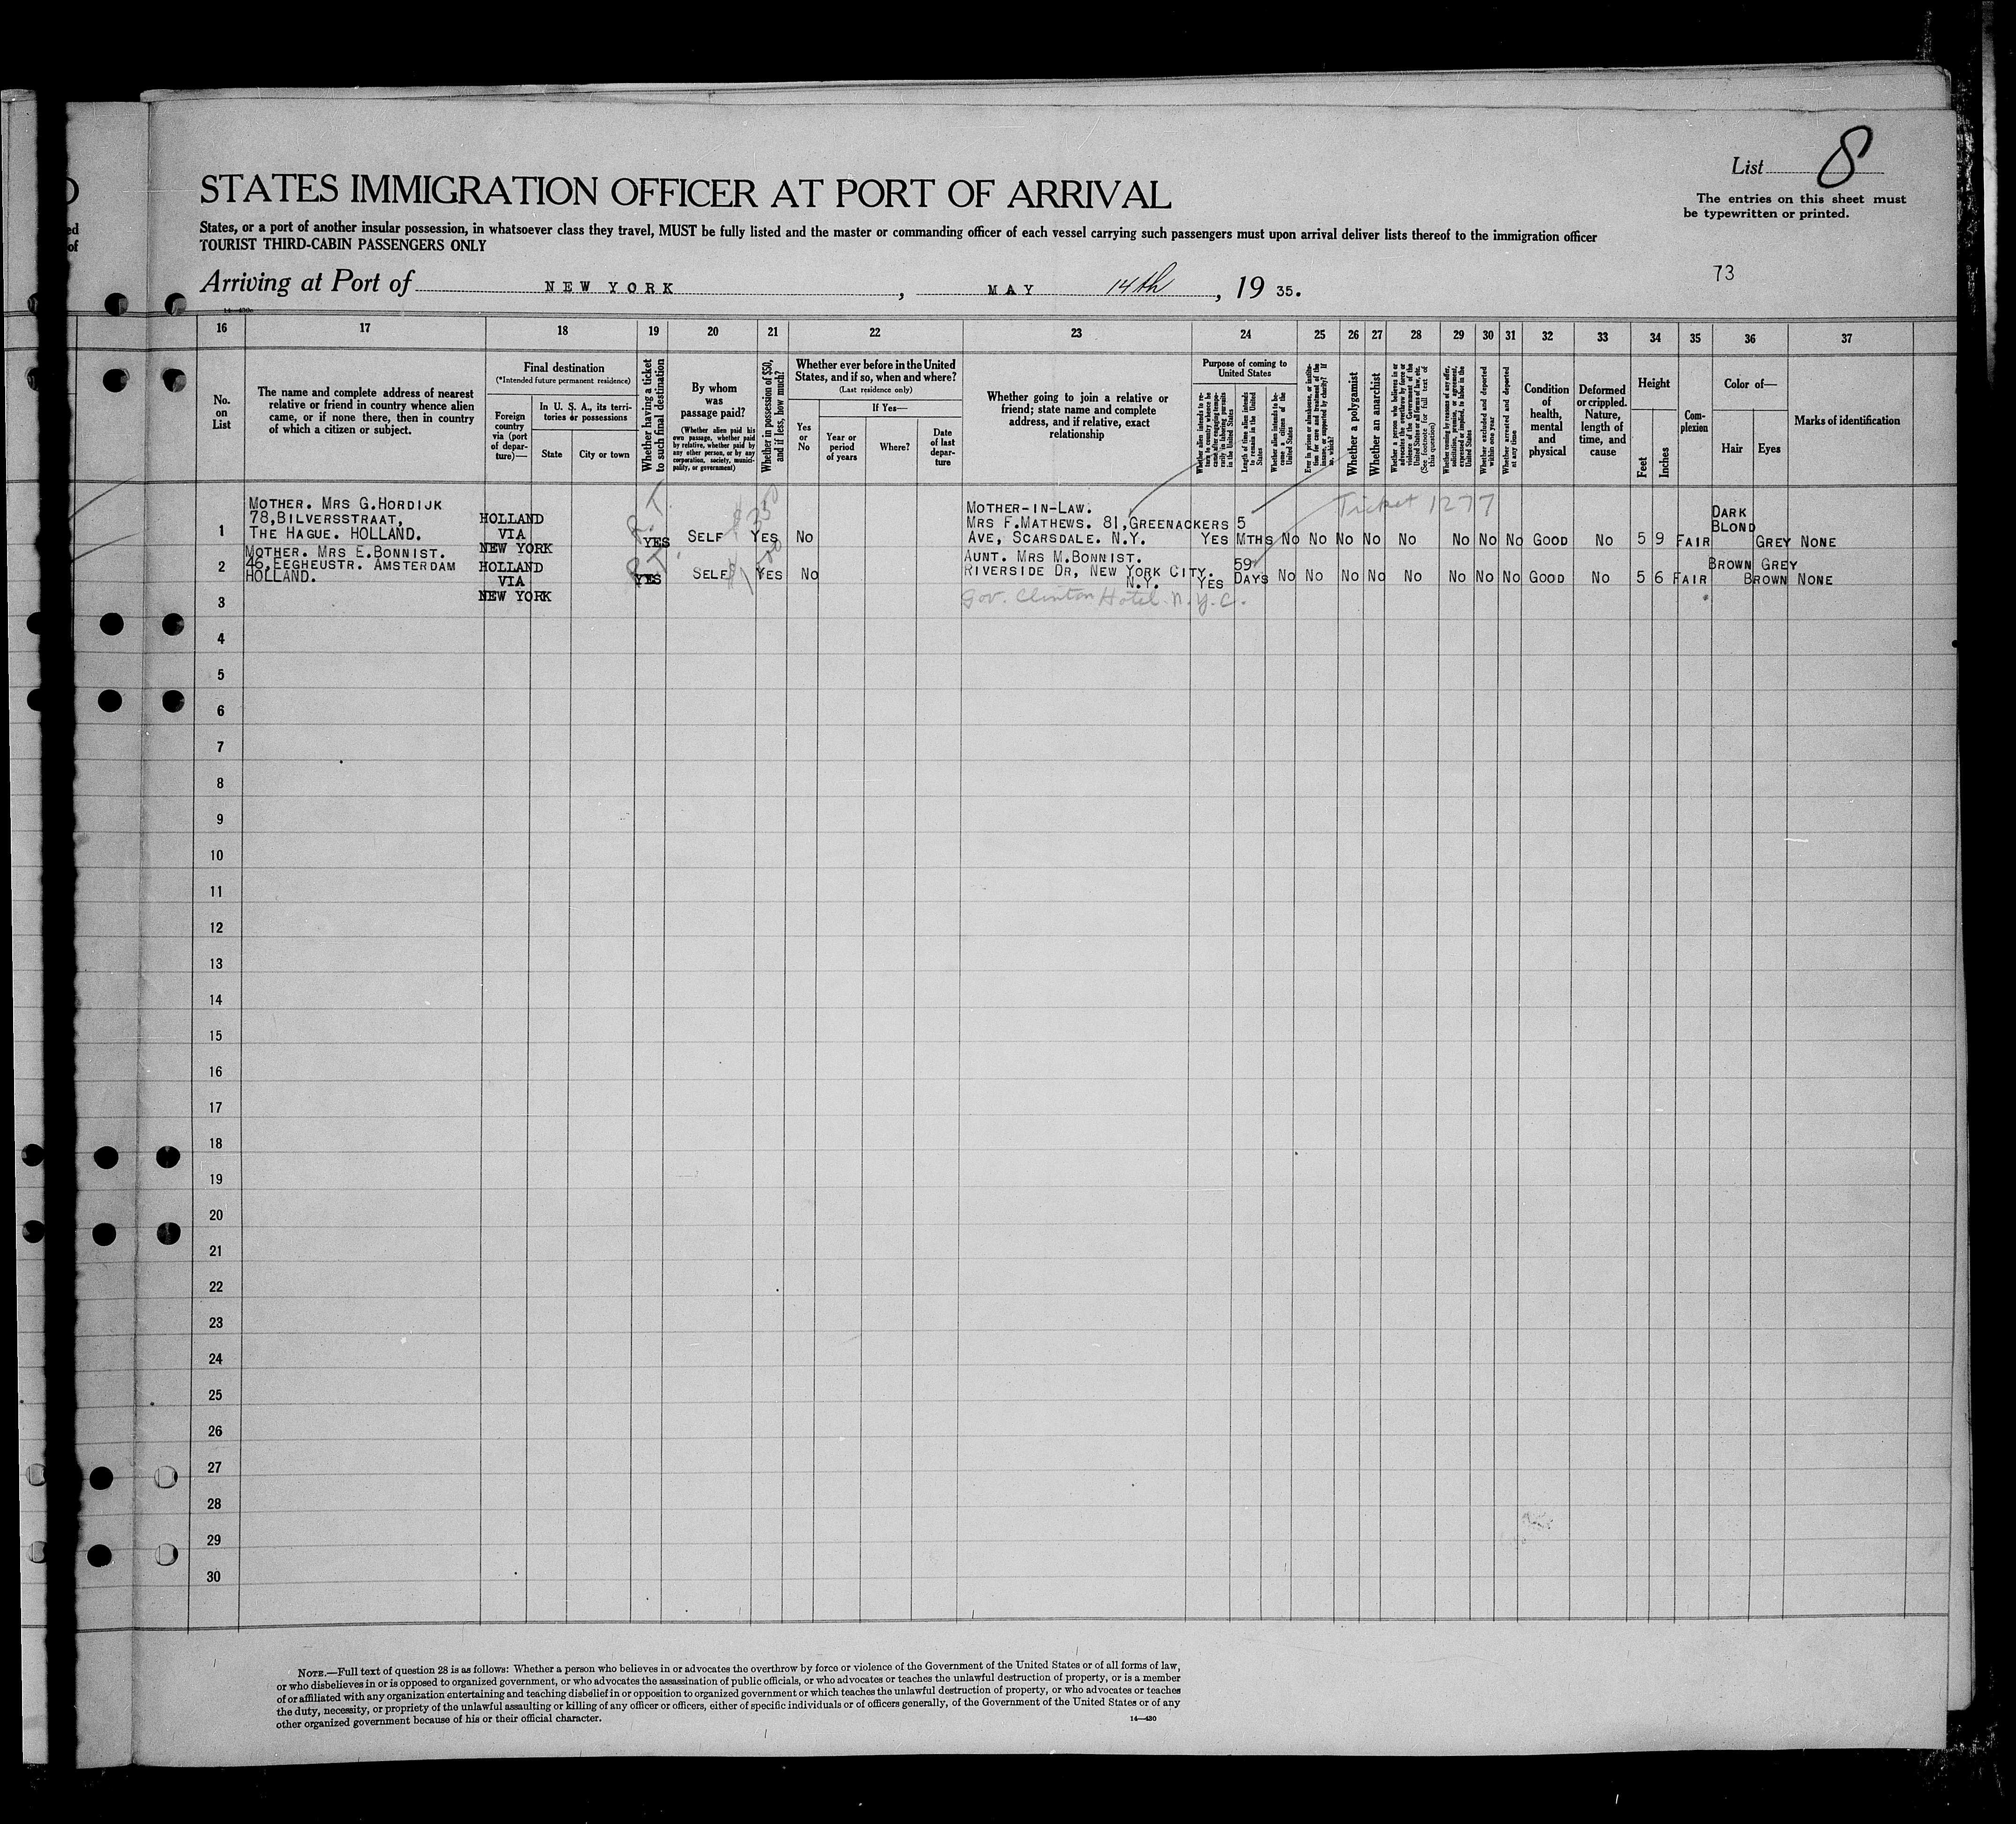 List 8
The entries on this sheet must
be typewritten or printed.
STATES IMMIGRATION OFFICER AT PORT OF ARRIVAL
States, or a port of another insular possession, in whatsoever class they travel, MUST be fully listed and the master or commanding officer of each vessel carrying such passengers must upon arrival deliver lists thereof to the immigration officer
TOURIST THIRD-CABIN PASSENGERS ONLY
73
Arriving at Port of NEW YORK, MAY 14th, 19 35.
16 17 18 19 20 21 22 23 24 25 26 27 28 29 30 31 32 33 34 35 36 37
No.
on
List
The name and complete address of nearest
relative or friend in country whence alien
came, or if none there, then in country
of which a citizen or subject.
Final destination
(*Intended future permanent residence)
Foreign
country
via (port
of depar-
ture)—
In U. S. A., its terri-
tories or possessions
State
City or town
Whether having a ticket
to such final destination
By whom
was
passage paid?
(Whether alien paid his
own passage, whether paid
by relative, whether paid by
any other person, or by any
corporation, society, munici-
pality, or government)
Whether in possession of $50,
and if less, how much?
Whether ever before in the United
States, and if so, when and where?
(Last residence only)
Yes
or
No
If Yes—
Year or
period
of years
Where?
Date
of last
depar-
ture
Whether going to join a relative or
friend; state name and complete
address, and if relative, exact
relationship
Purpose of coming to
United States
Whether alien intends to re-
turn to country whence he
came after engaging tempo-
rarily in laboring pursuits
in the United States
Length of time alien intends
to remain in the United
States
Whether alien intends to be-
come a citizen of the
United States
Ever in prison or almshouse, or institu-
tion for care and treatment of the
insane, or supported by charity? If
so, which?
Whether a polygamist
Whether an anarchist
Whether a person who believes in or
advocates the overthrow by force or
violence of the Government of the
United States or all forms of law, etc.
(See footnote for full text of
this question)
Whether coming by reason of any offer,
solicitation, promise, or agreement,
expressed or implied, to labor in the
United States
Whether excluded and deported
within one year
Whether arrested and deported
at any time
Condition
of
health,
mental
and
physical
Deformed
or crippled.
Nature,
length of
time, and
cause
Height
Feet
Inches
Com-
plexion
Color of—
Hair
Eyes
Marks of identification
Ticket 1277
1
MOTHER. MRS G.HORDIJK
78,BILVERSSTRAAT,
THE HAGUE. HOLLAND.
HOLLAND
VIA
NEW YORK
R.T.
YES SELF $350 YES NO
MOTHER-IN-LAW.
MRS F.MATHEWS. 81,GREENACKERS
AVE, SCARSDALE. N.Y.
YES 5
MTHS NO NO NO NO NO NO NO NO GOOD NO 5 9 FAIR DARK
BLOND GREY NONE
2
MOTHER. MRS E.BONNIST.
46,EEGHEUSTR. AMSTERDAM
HOLLAND.
HOLLAND
VIA
NEW YORK
R.T.
YES SELF YES NO
AUNT. MRS M.BONNIST.
RIVERSIDE DR, NEW YORK CITY.
N.Y.
YES 59
DAYS NO NO NO NO NO NO NO NO GOOD NO 5 6 FAIR BROWN GREY
BROWN NONE
3
Gov. Clinton Hotel. N.Y.C.
4
5
6
7
8
9
10
11
12
13
14
15
16
17
18
19
20
21
22
23
24
25
26
27
28
29
30
NOTE.—Full text of question 28 is as follows: Whether a person who believes in or advocates the overthrow by force or violence of the Government of the United States or of all forms of law,
or who disbelieves in or is opposed to organized government, or who advocates the assassination of public officials, or who advocates or teaches the unlawful destruction of property, or is a member
of or affiliated with any organization entertaining and teaching disbelief in or opposition to organized government or which teaches the unlawful destruction of property, or who advocates or teaches
the duty, necessity, or propriety of the unlawful assaulting or killing of any officer or officers, either of specific individuals or of officers generally, of the Government of the United States or of any
other organized government because of his or their official character.
14—430